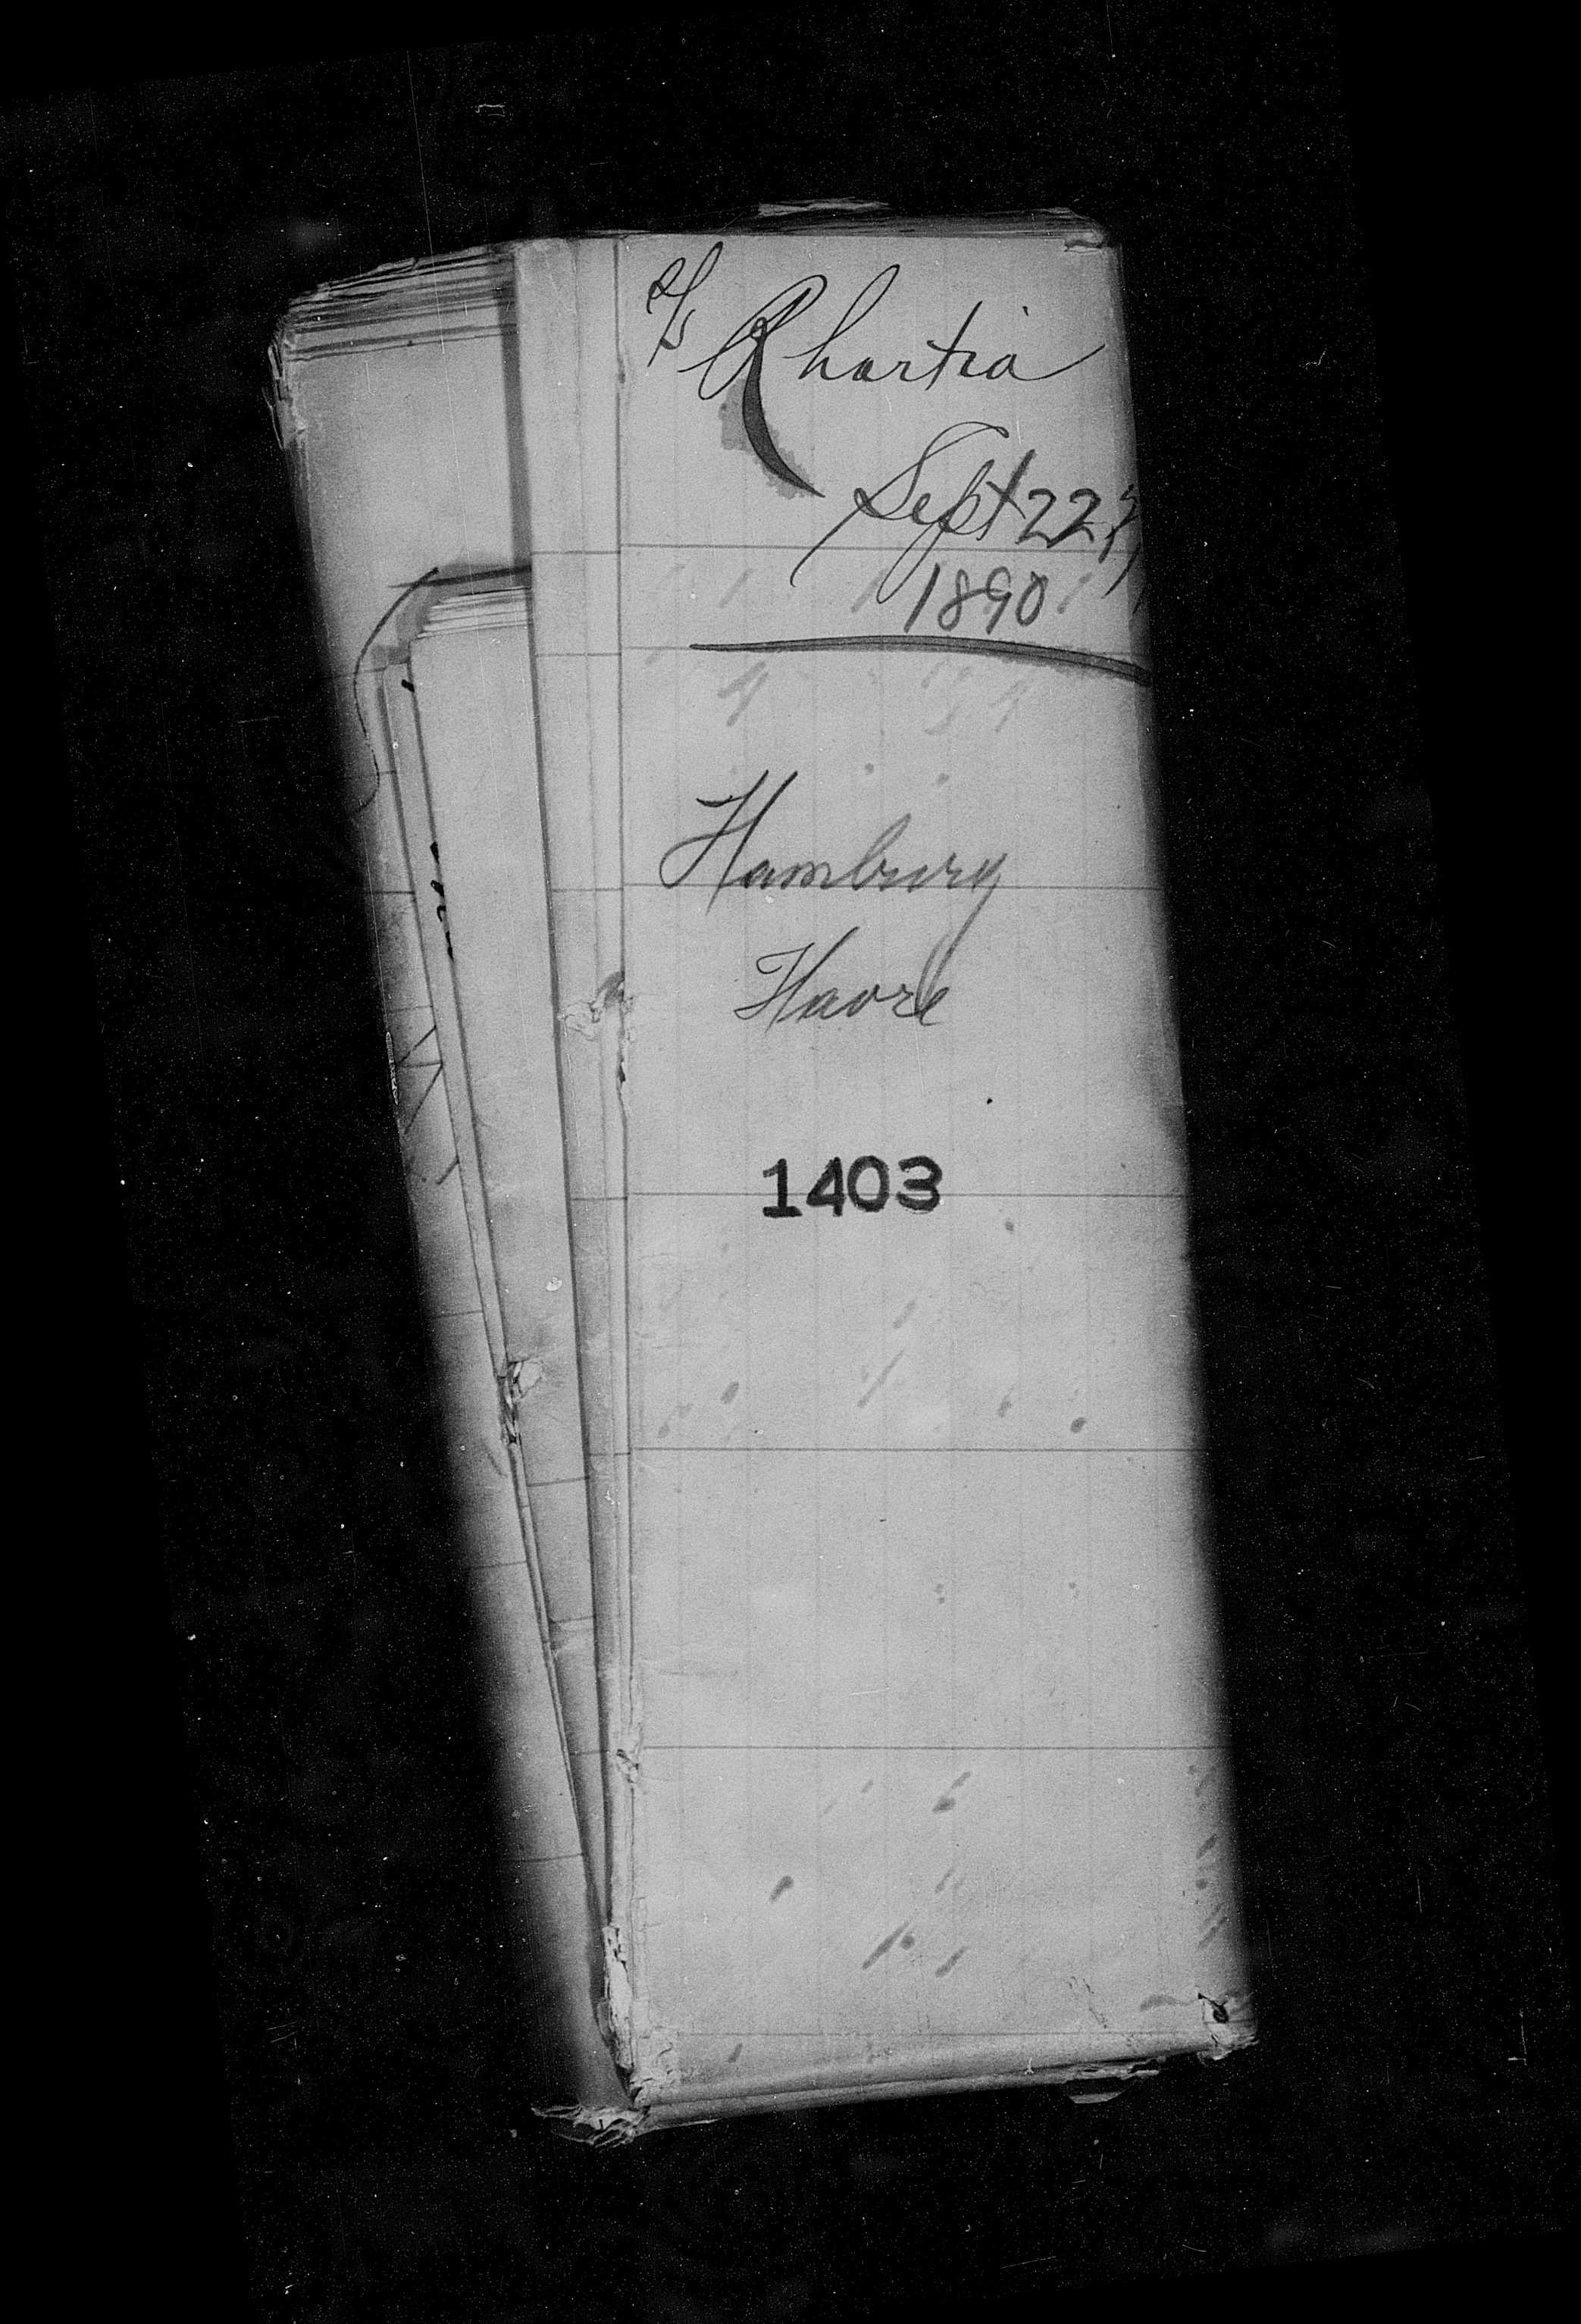 S/S Rhaetia
Sept 22nd
1890
Hamburg
Havre
1403